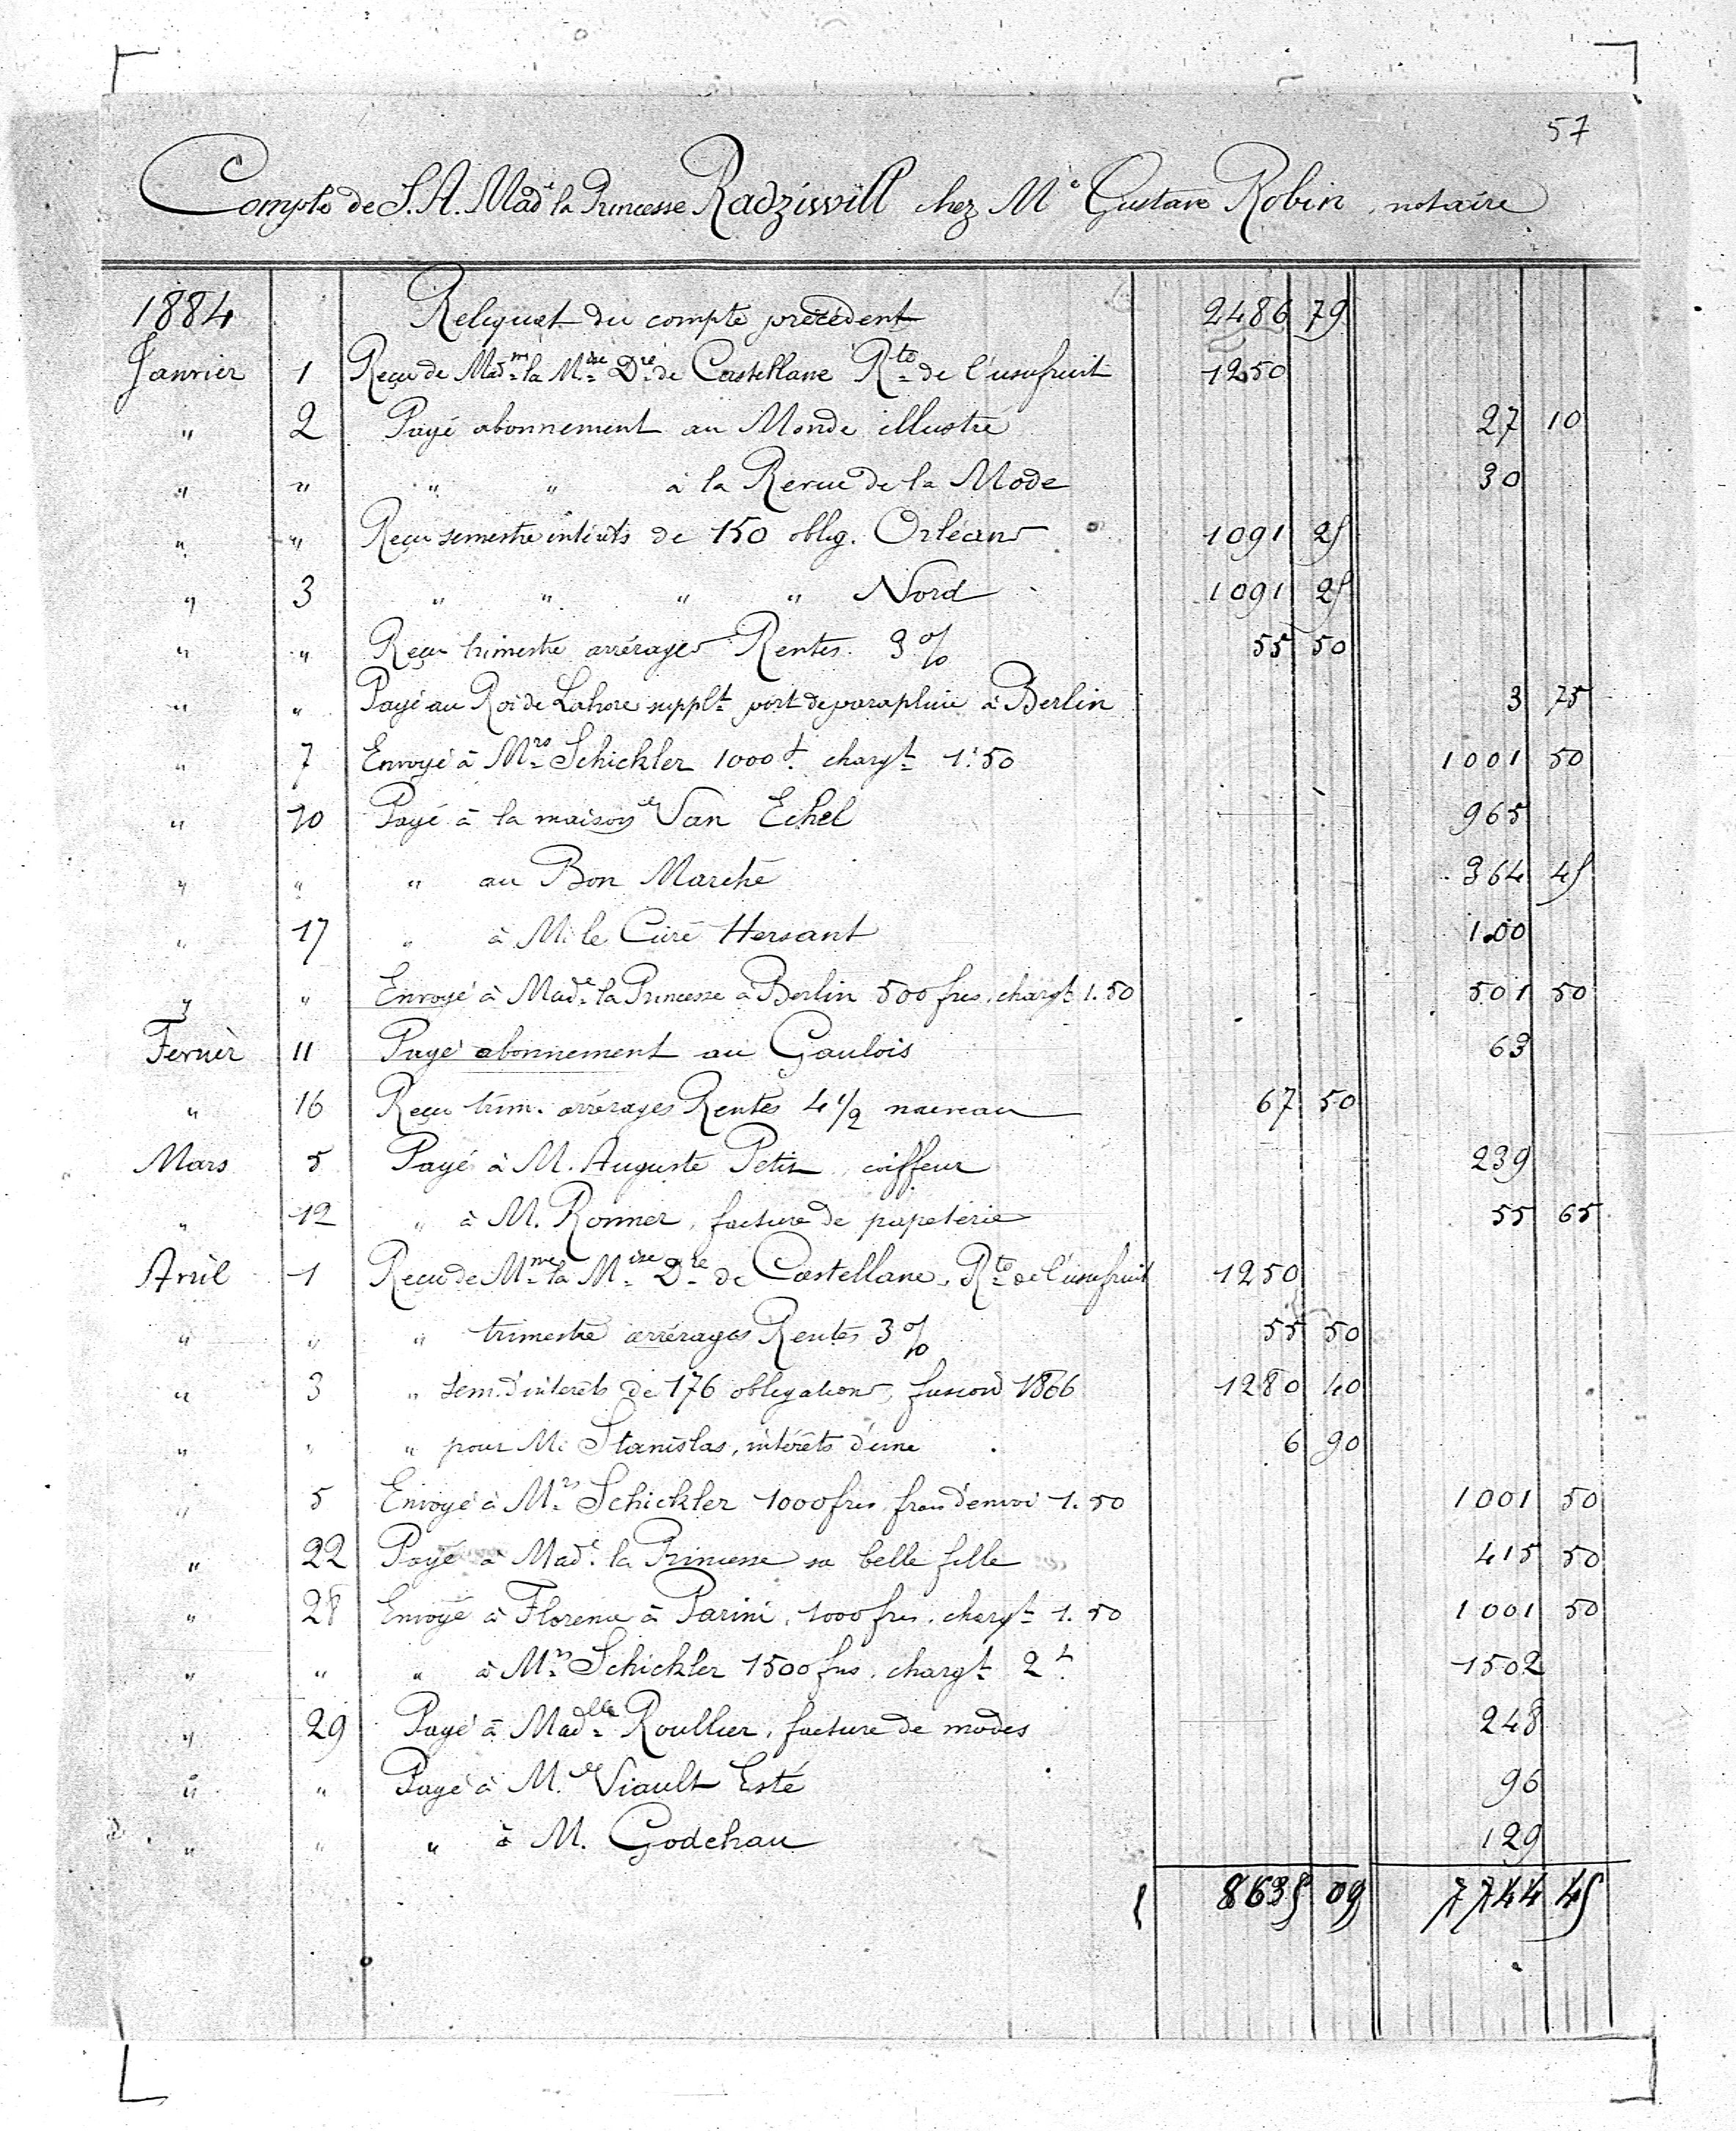 57
Compte de S.A. Made la Princesse Radziwill chez Me Gustave Robin, notaire
1884 Reliquat du compte précédent 2486 79
Janvier 1 Reçu de Madm la Mise Dre de Castellane Rte de l'usufruit 1250
" 2 Payé abonnement au Monde illustré 27 10
" " " " à la Revue de la Mode 30
" " Reçu semestre intérêts de 150 oblig. Orléans 1091 25
" 3 " " " " Nord 1091 25
" " Reçu trimestre arrérages Rentes 3 % 55 50
" " Payé au Roi de Lahore supplt port de parapluie à Berlin 3 75
" 7 Envoyé à Mrs Schickler 1000 f. chargt 1.50 1001 50
" 10 Payé à la maison Van Echel 965
" " " au Bon Marché 364 45
" 17 " à M. le Curé Hersant 100
" " Envoyé à Made la Princesse à Berlin 500 frcs. chargt 1.50 501 50
Fevrier 11 Payé abonnement au Gaulois 63
" 16 Reçu trim. arrérages Rentes 4 1/2 nouveau 67 50
Mars 5 Payé à M. Auguste Petit, coiffeur 239
" 12 " à M. Ronner, facture de papeterie 55 65
Avril 1 Reçu de Mme la Mise Dre de Castellane, Rte de l'usufruit 1250
" " " trimestre arrérages Rentes 3 % 55 50
" 3 " sem. d'intérêts de 176 obligations, fusion 1866 1280 40
" " " pour M. Stanislas, intérêts d'une 6 90
" 5 Envoyé à Mrs Schickler 1000 frcs frais d'envoi 1.50 1001 50
" 22 Payé à Made la Princesse sa belle fille 415 50
" 28 Envoyé à Florence à Parini, 1000 frcs. chargt 1.50 1001 50
" " " à Mrs Schickler 1500 frcs. chargt 2 f. 1502
" 29 Payé à Madlle Roullier, facture de modes 248
" " Payé à M. Viault Esté 96
" " " à M. Godchau 129
8635 09 7744 45